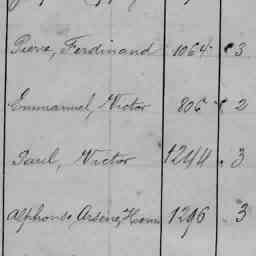 Pierre, Ferdinand 1064 3
Emmanuel, Victor 806 2
Paul, Victor 1244 3
Alphonse, Arsène, 1296 3